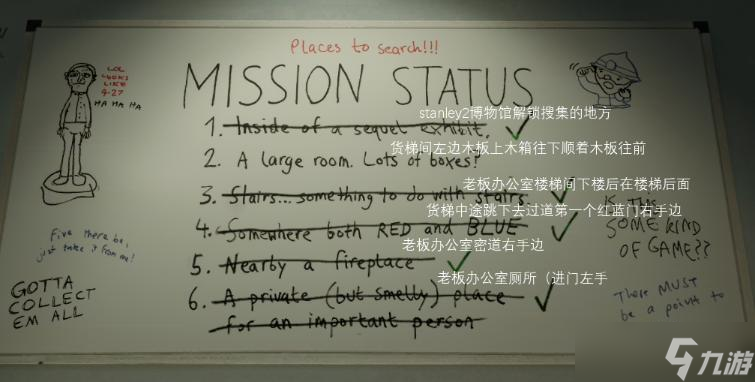 Places to search!!!
MISSION STATUS
LOL
LOOKS
LIKE
4-27
HA HA HA
stanley2博物馆解锁搜集的地方
1. Inside of a sequel exhibit.
货梯间左边木板上木箱往下顺着木板往前
2. A large room. Lots of boxes?
老板办公室楼梯间下楼后在楼梯后面
3. Stairs...something to do with stairs.
货梯中途跳下去过道第一个红蓝门右手边
4. Somewhere both RED and BLUE
IS THIS
SOME KIND
OF GAME??
老板办公室密道右手边
5. Nearby a fireplace
Five there be,
just take it from me!
老板办公室厕所（进门左手
6. A private (but smelly) place
for an important person
GOTTA
COLLECT
EM ALL
There MUST
be a point to
九游